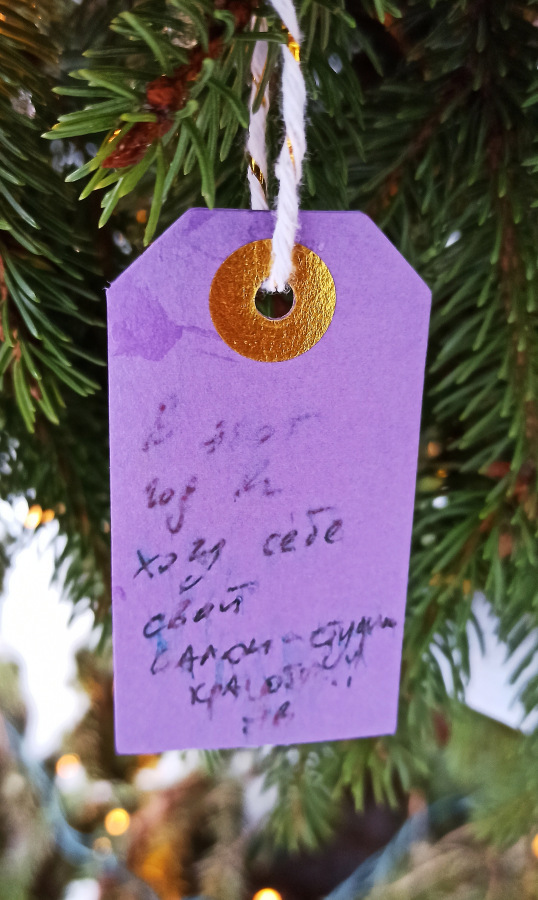 В этот
год я
хочу себе
свой
салон-студию
красоты!!